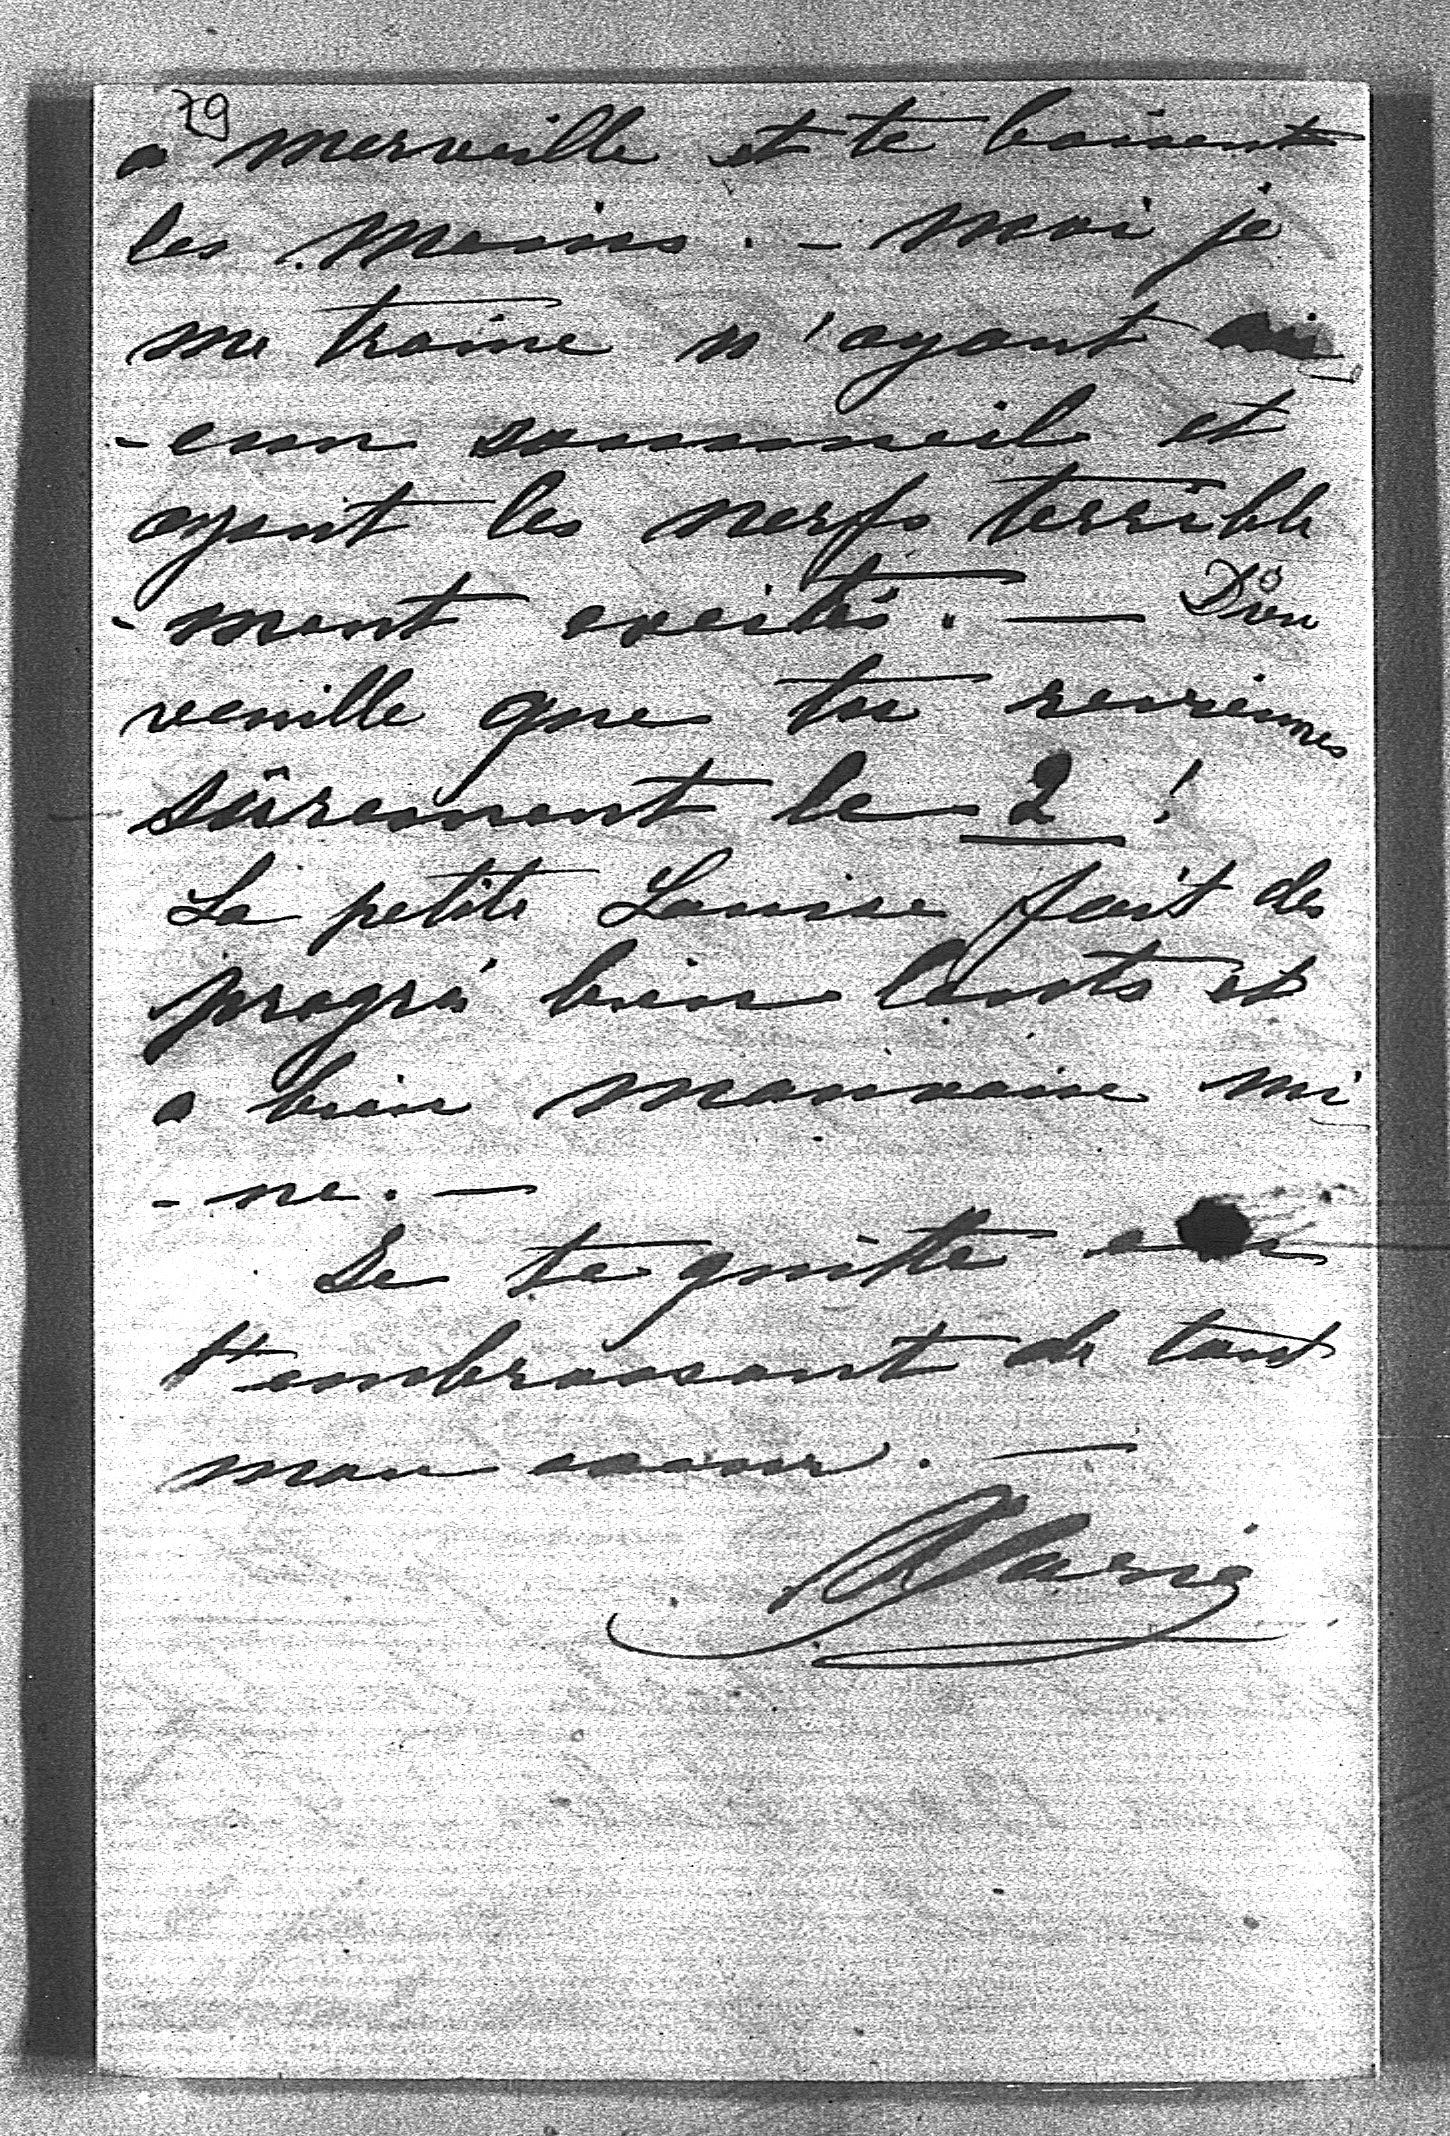 79
a merveille et te baisent
les mains. - Moi je
me traine n'ayant au
-cun sommeil et
ayant les nerfs terrible
-ment excités. — Dieu
veuille que tu reviennes
sûrement le 2 !
La petite Louise fait des
progrès bien lents et
a bien mauvaise mi
-ne. —
Je te quitte en
t'embrassant de tout
mon coeur. —
Marie